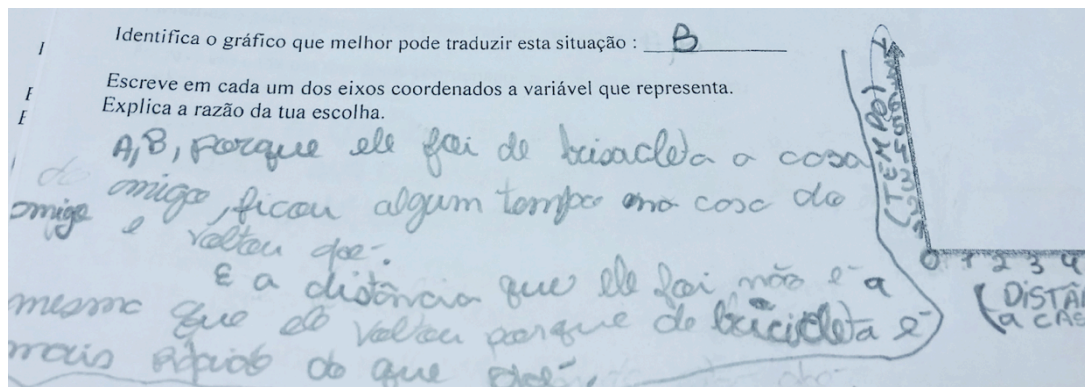 Identifica o gráfico que melhor pode traduzir esta situação : B
Escreve em cada um dos eixos coordenados a variável que representa.
Explica a razão da tua escolha.
A, B, porque ele foi de bisacleta a casa
do amigo, ficou algum tempo na casa do
amigo e voltou
E a distância que ele foi não é a
mesma que ele voltou porque de bicicleta é
mais rápido do que
(TEMPO)
0 1 2 3 4
(DISTÂ
a CAS